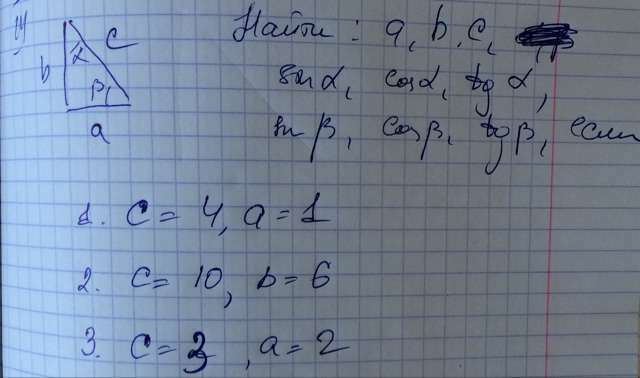 Найти: a, b, c,
sin α, cos α, tg α,
sin β, cos β, tg β, если
b
c
α
β
a
1. c = 4, a = 1
2. c = 10, b = 6
3. c = 3, a = 2